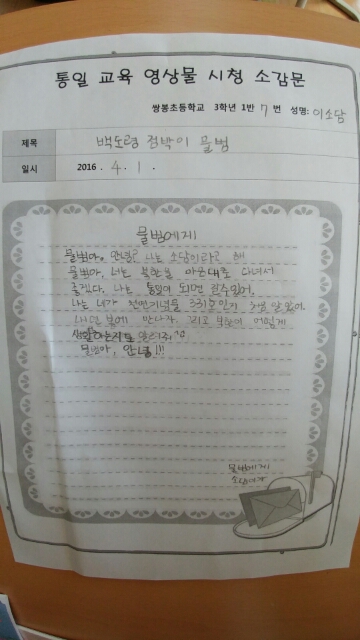 통일 교육 영상물 시청 소감문
쌍봉초등학교 3학년 1반 7 번 성명: 이소담
제목 백도령 점박이 물범
일시 2016 . 4 . 1 .
물범에게
물범아. 안녕? 나는 소담이라고 해
물범아, 너는 북한을 마음대로 다녀서
좋겠다. 나는 통일이 되면 갈수있어.
나는 네가 천연기념물 331호인지 처음 알았어.
봄에 만나자. 그리고 북한이 어떻게
생활하는지도 알려줘.
물범아, 안녕!!!
물범에게
소담이가